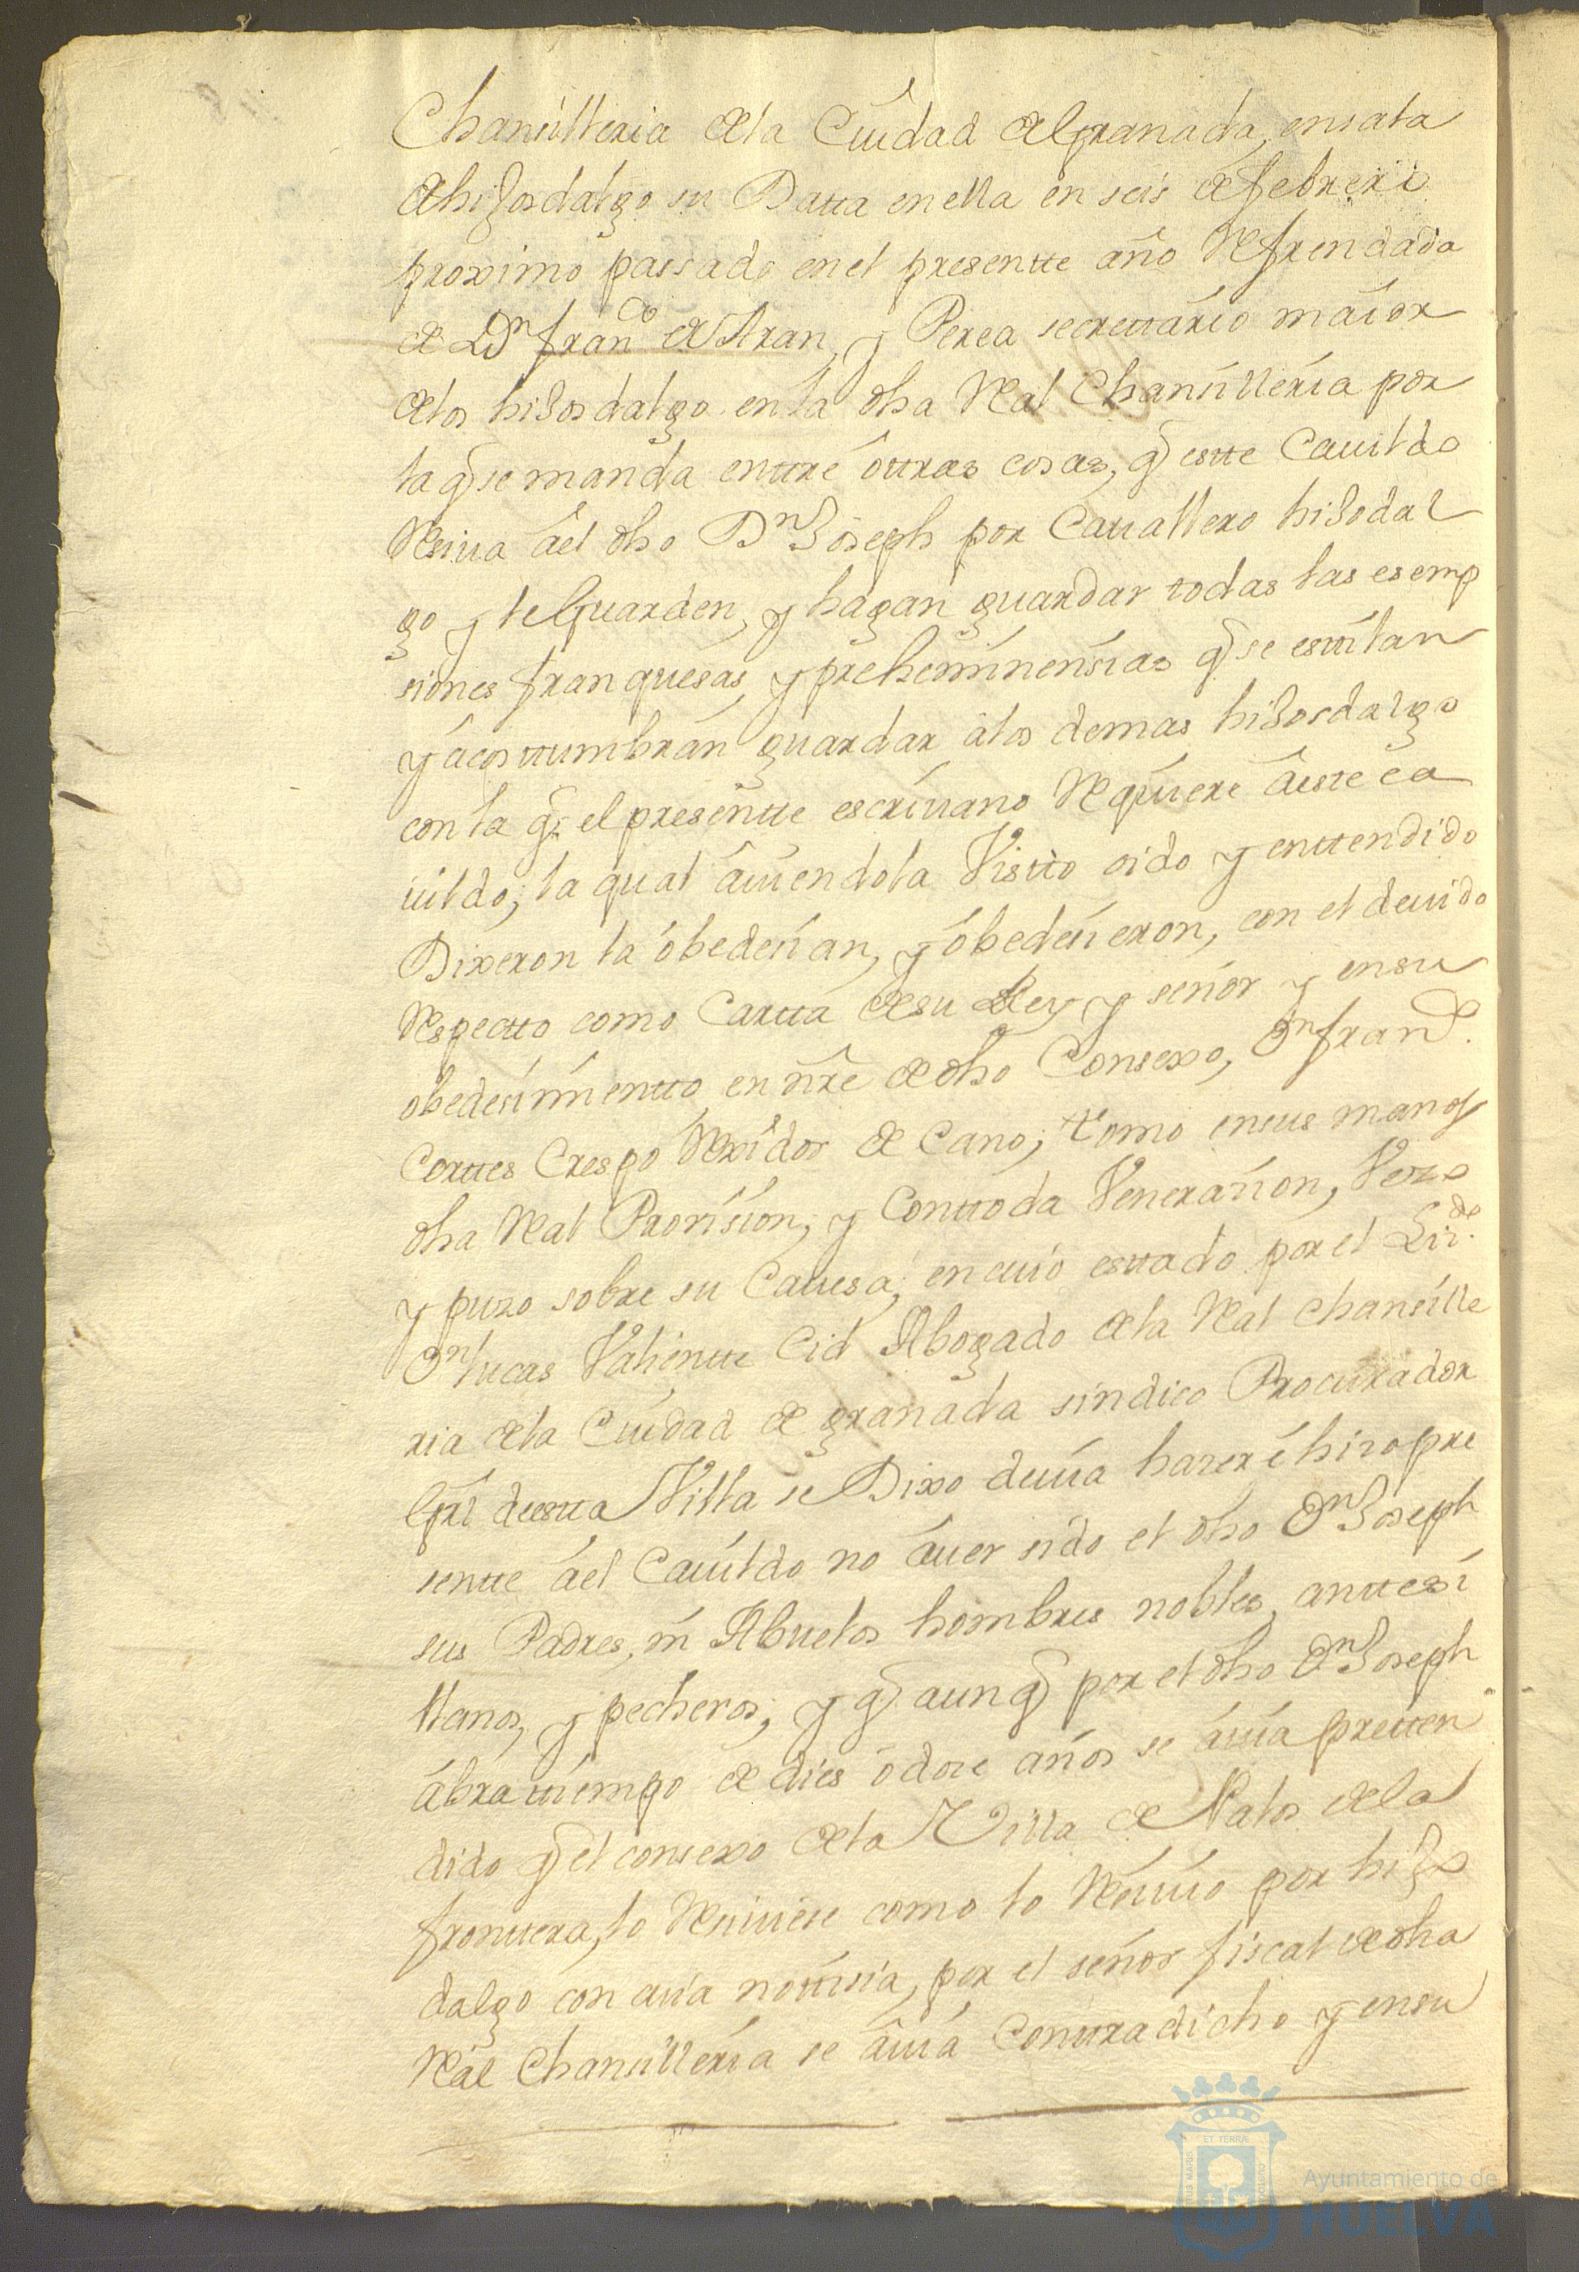 Chansilleria de la Ciudad de Granada, en sala
de hijosdalgo su Datta en ella en seis de febrero
proximo passado en el presentte año Refrendada
de Dn franco de Aran, y Perea secrettario maior
de los hijosdalgo en la dha Real Chansilleria por
la q se manda enttre ôttras cosas, q estte Cavildo
Resiva âel dho Dn Joseph por Cavallero hijodal
go y le Guarden, y hagan guardar todas las esemp
siones franquesas, y preheminensias q se estilan
y acosttumbran guardar âlos demas hijosdalgo
con la q el presentte escrivano Requiere âeste ca
vildo; la qual âviendola Vistto oido y enttendido
Dixeron la obedesian, y obedesieron, con el devido
Respectto como Cartta de su Rey y señor y en su
obedesimientto, en nre de dho Consexo, Dn franco
Corttes Crespo Rexidor de Cano; tomo en sus manos
dha Real Provision, y Con ttoda Venerasion, Veso
y puso sobre su Cavesa; en cuio esttado por el Lizdo
Dn Lucas Valientte Cid Abogado de la Real Chansille
ria de la Ciudad de granada sindico Procurador
Gral de estta Villa se Dixo devia hazer é hizo pre
sentte âel Cavildo no âver sido el dho Dn Joseph
sus Padres, ni Abuelos hombres nobles, anttes si
llanos, y pecheros; y q aunq por el dho Dn Joseph
âbra ttiempo de dies ô dose años se âvia pretten
dido q el consexo de la Villa de Palos de la
fronttera, lo Resiviese como lo Resivio por hijo
dalgo con cuia nottisia, por el señor fiscal de dha
Real Chansilleria se âvia Conttradicho y en su
ET TERRÆ
Ayuntamiento de
HUELVA